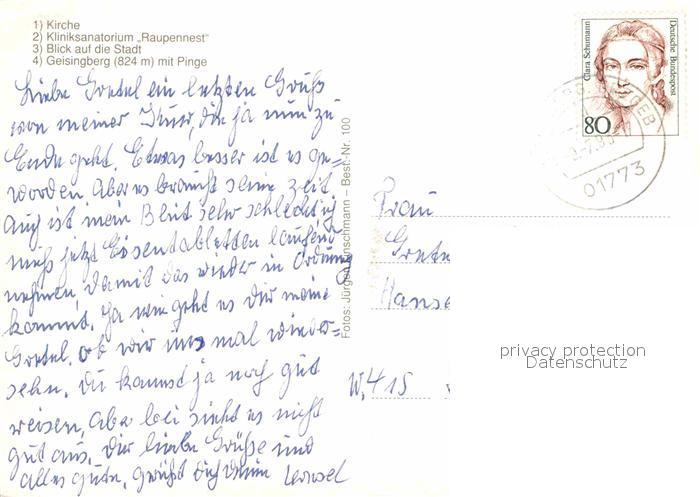 1) Kirche
2) Kliniksanatorium „Raupennest“
3) Blick auf die Stadt
4) Geisingberg (824 m) mit Pinge
Liebe Gretel ein letzten Gruß
von meiner Kuur, die ja nun zu
Ende geht. Etwas besser ist es ge-
worden. Aber es braucht seine Zeit.
Auch ist mein Blut sehr schlecht ich
muß jetzt Eisentabletten laufend
nehmen, damit das wieder in Ordnung
kommt. Ja wie geht es Dir meine
Gretel. ob wir uns mal wieder-
sehn. Du kannst ja noch gut
reisen, Aber bei sieht es nicht
gut aus. Dir liebe Grüße und
alles gute, grüßt Dich Deine
Fotos: Jürgen – Best.-Nr. 100
Clara Schumann
Deutsche Bundespost
80
01773
Frau
Grete
Hanse
W, 415
privacy protection
Datenschutz